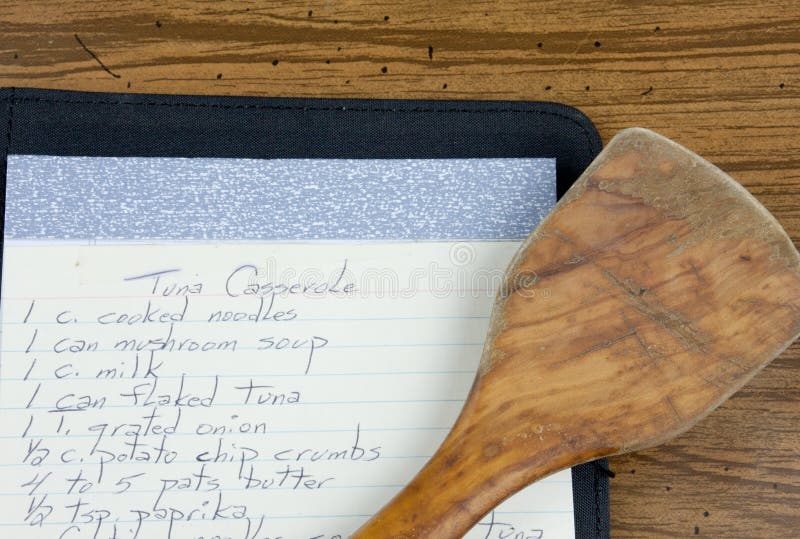 Tuna Casserole
1 c. cooked noodles
1 can mushroom soup
1 c. milk
1 can flaked tuna
1 T. grated onion
1/2 c. potato chip crumbs
4 to 5 pats butter
1/2 tsp. paprika
noodles tuna
dreamstime